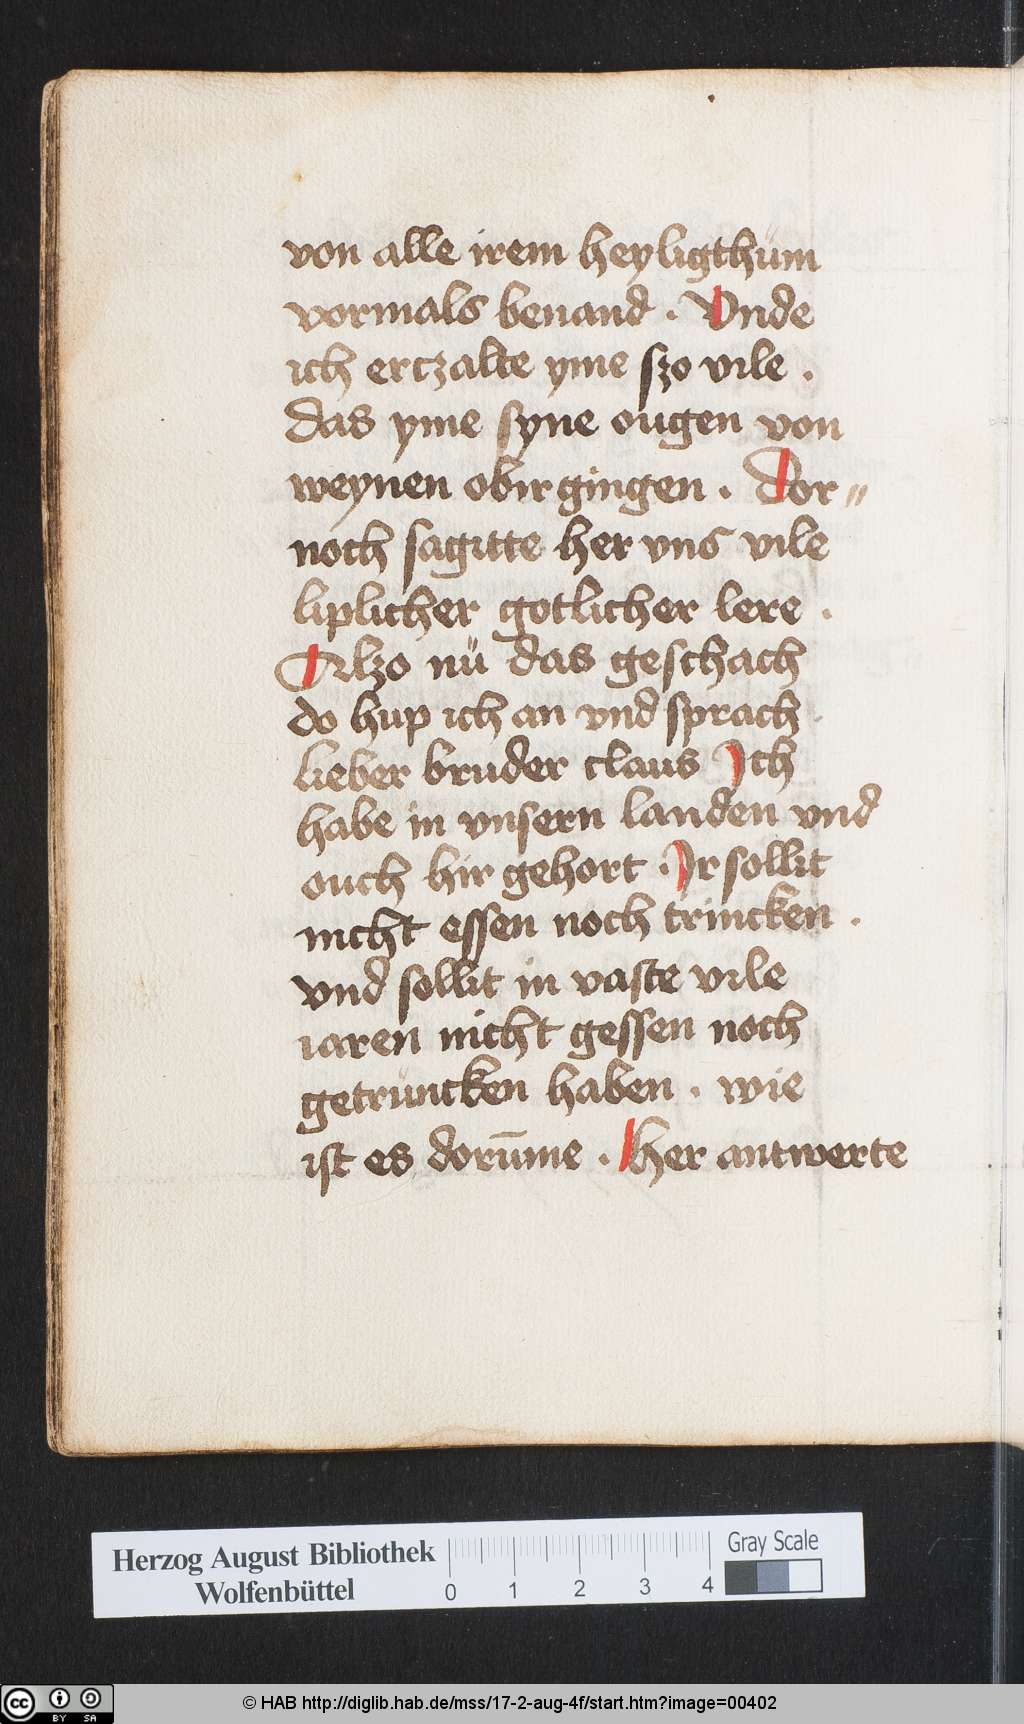 von alle irem heyligthüm
vormals benand . Vnde
ich erczalte yme szo vile .
das yme syne ougen von
weynen obir gingen . Dor//
noch sagitte her vns vile
liplicher gotlicher lere .
Alzo nü das geschach
do hup ich an vnd sprach .
lieber bruder claus Ich
habe in vnsern landen vnd
ouch hir gehort . Ir sollit
nicht essen noch trincken .
vnd sollit in vaste vile
iaren nicht gessen noch
getruncken haben . wie
ist es dorūme . Her antwerte
Herzog August Bibliothek
Wolfenbüttel
0 1 2 3 4
Gray Scale
cc BY SA
© HAB http://diglib.hab.de/mss/17-2-aug-4f/start.htm?image=00402